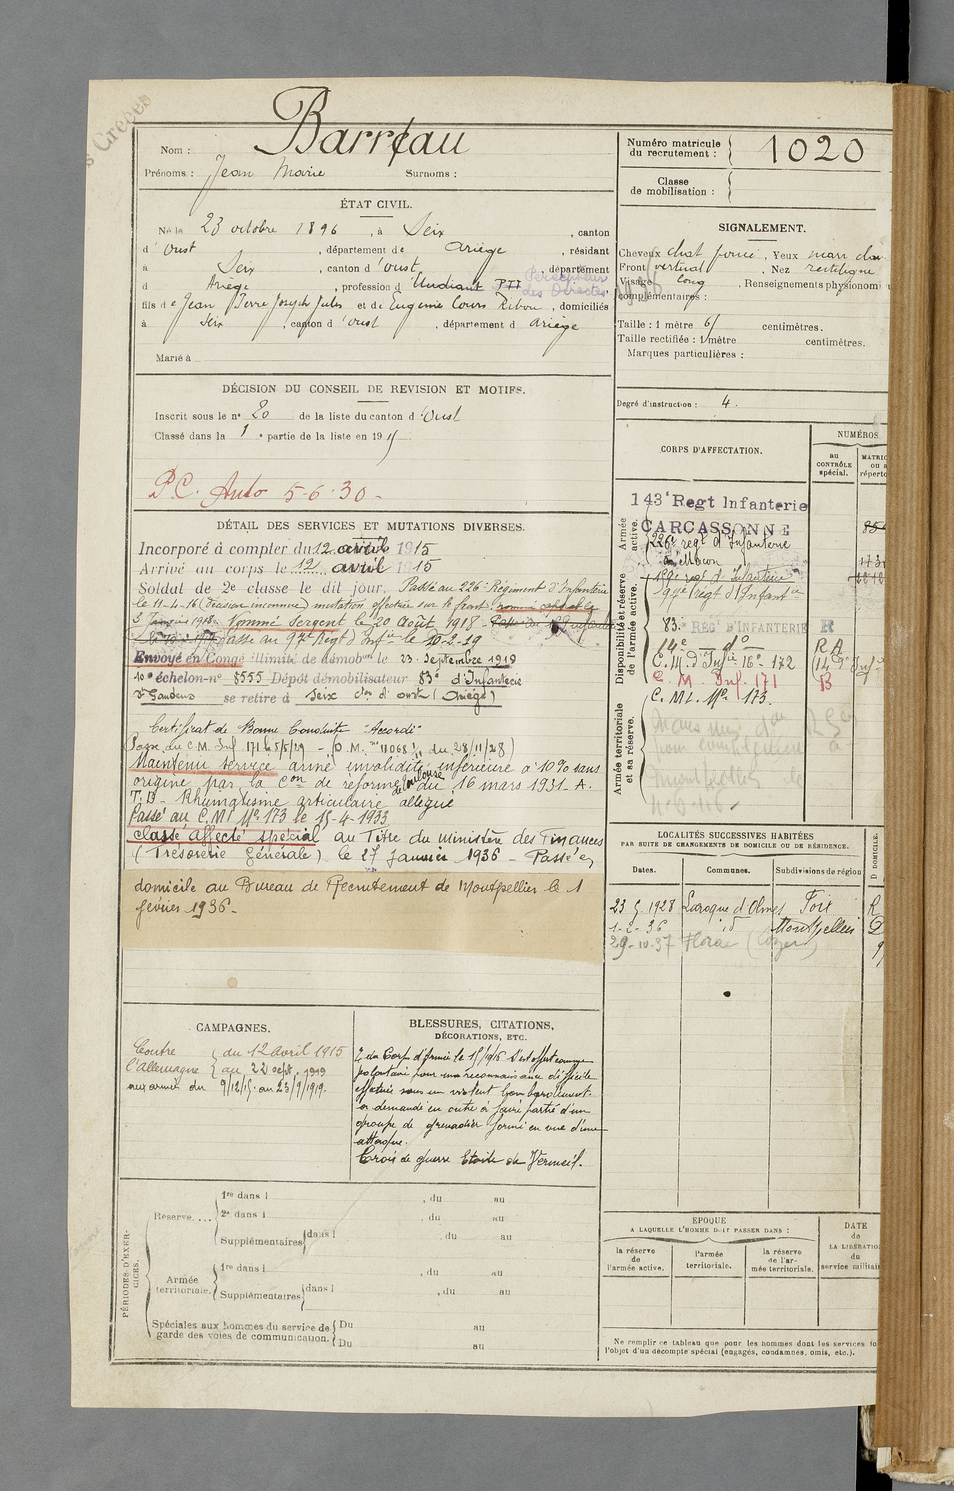 Barreau
Nom :
Prénoms : Jean Marie Surnoms :
ÉTAT CIVIL.
Né le 23 octobre 1896, à Seix, canton
d' Oust, département de Ariège, résidant
à Seix, canton d'oust, département
d Ariège, profession d' Etudiant PTT
Percepteur
des Directes
fils de Jean Pierre Joseph Jules et de Eugénie Cours Ribou, domiciliés
à Seix, canton d'oust, département d Ariège
Marié à
DÉCISION DU CONSEIL DE REVISION ET MOTIFS.
Inscrit sous le n° 20 de la liste du canton d'Oust
Classé dans la 1e partie de la liste en 191
P.C. Auto 5-6-30-
DÉTAIL DES SERVICES ET MUTATIONS DIVERSES.
Incorporé à compter du 12 avril 1915
Arrivé au corps le 12 avril 1915
Soldat de 2e classe le dit jour. Passé au 226e Régiment d'Infanterie
le 11-4-16 (décision inconnue) mutation effectuée sur le front
1918. Nommé Sergent le 20 Août 1918 -
Passé au 97e Regt d'Infie le 10-2-19
Envoyé en Congé illimité de démobon le 23 Septembre 1919
10e échelon-n° 8555 Dépôt démobilisateur 83e d'Infanterie
St Gaudens se retire à Seix cton d'oust (Ariège)
Certificat de Bonne Conduite "Accordé"
Passé du C.M. Inf 171 le 5/5/29 - (D.M. n° 11068 du 28/11/28)
Maintenu service armé invalidité inférieure à 10% sans
origine par la Con de réforme de Toulouse du 16 mars 1931 - A.
T.B - Rhumatisme articulaire allégué
Passé au C.MI No 173 le 15-4-1933
Classé affecté spécial au Titre du ministère des Finances
(Trésorerie Générale) le 27 janvier 1936 - Passé en
domicile au Bureau de Recrutement de Montpellier le 1
février 1936 -
CAMPAGNES.
Contre { du 12 Avril 1915
l'Allemagne { au 22 sept. 1919
aux armées du 9/12/15 au 23/9/1919.
BLESSURES, CITATIONS,
DÉCORATIONS, ETC.
S'est offert comme
volontaire pour une reconnaissance difficile
effectuée sous un violent bombardement.
a demandé en outre à faire partie d'un
groupe de grenadier formé en vue d'une
attaque.
Croix de guerre Etoile de Vermeil.
PÉRIODES D'EXERCICES.
Réserve....
1re dans l , du au
2e dans l , du au
Supplémentaires dans l , du au
Armée
territoriale.
1re dans l , du au
Supplémentaires dans l , du au
Spéciales aux hommes du service de
garde des voies de communication.
Du au
Du au
Numéro matricule
du recrutement : 1020
Classe
de mobilisation :
SIGNALEMENT.
Cheveux chat foncé, Yeux
Front vertical, Nez rectiligne
Visage long, Renseignements physionom
complémentaires :
Taille : 1 mètre 61 centimètres.
Taille rectifiée : 1 mètre centimètres.
Marques particulières :
Degré d'instruction : 4.
CORPS D'AFFECTATION.
NUMÉROS
au
CONTRÔLE
spécial.
MATRIC
ou a
réperto
Armée
active.
143e Regt Infanterie
CARCASSONNE
226e regt d'Infanterie
Disponibilité et réserve
de l'armée active.
97e Regt d'Infantie
83e REGt D'INFANTERIE R
14e do R A
C.M. d'Infie 16e-172
C. M. Inf. 171 B
C. MI. No 173.
Armée territoriale
et sa réserve.
LOCALITÉS SUCCESSIVES HABITÉES
PAR SUITE DE CHANGEMENTS DE DOMICILE OU DE RÉSIDENCE.
Dates. Communes. Subdivisions de région
D DOMICILE.
23 5 1928 Laroque d'Olmes Foix R
1-2-36 id Montpellier D
29-10-37 Florac (Lozère)
EPOQUE
A LAQUELLE L'HOMME DOIT PASSER DANS :
la réserve
de
l'armée active.
l'armée
territoriale.
la réserve
de l'ar-
mée territoriale.
DATE
de
LA LIBÉRATION
du
service militair
Ne remplir ce tableau que pour les hommes dont les services so
l'objet d'un décompte spécial (engagés, condamnés, omis, etc.).